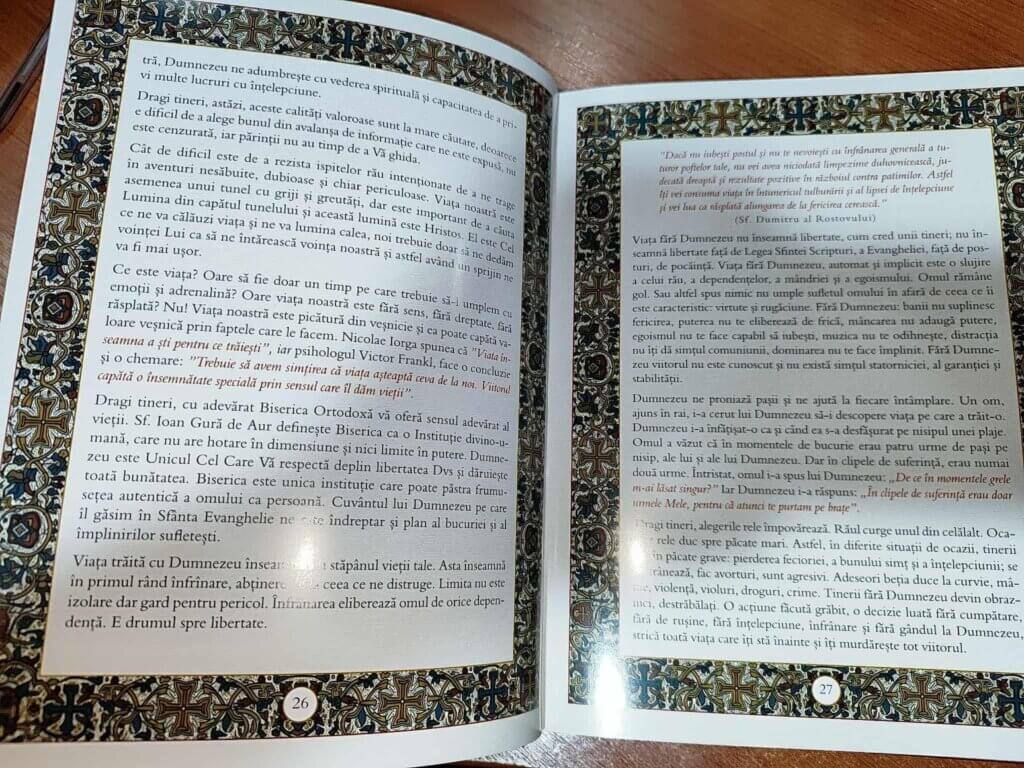 tră, Dumnezeu ne adumbrește cu vederea spirituală și capacitatea de a pri-
vi multe lucruri cu înțelepciune.
Dragi tineri, astăzi, aceste calități valoroase sunt la mare căutare, deoarece
e dificil de a alege bunul din avalanșa de informație care ne este expusă, nu
este cenzurată, iar părinții nu au timp de a Vă ghida.
Cât de dificil este de a rezista ispitelor rău intenționate de a ne trage
în aventuri nesăbuite, dubioase și chiar periculoase. Viața noastră este
asemenea unui tunel cu griji și greutăți, dar este important de a căuta
Lumina din capătul tunelului și această lumină este Hristos. El este Cel
ce ne va călăuzi viața și ne va lumina calea, noi trebuie doar să ne dedăm
voinței Lui ca să ne întărească voința noastră și astfel având un sprijin ne
va fi mai ușor.
Ce este viața? Oare să fie doar un timp pe care trebuie să-i umplem cu
emoții și adrenalină? Oare viața noastră este fără sens, fără dreptate, fără
răsplată? Nu! Viața noastră este picătură din veșnicie și ea poate capătă va-
loare veșnică prin faptele care le facem. Nicolae Iorga spunea că "Viata în-
seamna a ști pentru ce trăiești", iar psihologul Victor Frankl, face o concluzie
și o chemare: "Trebuie să avem simțirea că viața așteaptă ceva de la noi. Viitorul
capătă o însemnătate specială prin sensul care îl dăm vieții".
Dragi tineri, cu adevărat Biserica Ortodoxă vă oferă sensul adevărat al
vieții. Sf. Ioan Gură de Aur definește Biserica ca o Instituție divino-u-
mană, care nu are hotare în dimensiune și nici limite în putere. Dumne-
zeu este Unicul Cel Care Vă respectă deplin libertatea Dvs și dăruiește
toată bunătatea. Biserica este unica instituție care poate păstra frumu-
sețea autentică a omului ca persoană. Cuvântul lui Dumnezeu pe care
îl găsim în Sfânta Evanghelie ne este îndreptar și plan al bucuriei și al
împlinirilor sufletești.
Viața trăită cu Dumnezeu însea stăpânul vieții tale. Asta înseamnă
în primul rând înfrînare, abținere ceea ce ne distruge. Limita nu este
izolare dar gard pentru pericol. Înfrânarea eliberează omul de orice depen-
dență. E drumul spre libertate.
26
"Dacă nu iubești postul și nu te nevoiești cu înfrânarea generală a tu-
turor poftelor tale, nu vei avea niciodată limpezime duhovnicească, ju-
decată dreaptă și rezultate pozitive în războiul contra patimilor. Astfel
îți vei consuma viața în întunericul tulburării și al lipsei de înțelepciune
și vei lua ca răsplată alungarea de la fericirea cerească."
(Sf. Dumitru al Rostovului)
Viața fără Dumnezeu nu înseamnă libertate, cum cred unii tineri; nu în-
seamnă libertate față de Legea Sfintei Scripturi, a Evangheliei, față de pos-
turi, de pocăință. Viața fără Dumnezeu, automat și implicit este o slujire
a celui rău, a dependențelor, a mândriei și a egoismului. Omul rămâne
gol. Sau altfel spus nimic nu umple sufletul omului în afară de ceea ce îi
este caracteristic: virtute și rugăciune. Fără Dumnezeu: banii nu suplinesc
fericirea, puterea nu te eliberează de frică, mâncarea nu adaugă putere,
egoismul nu te face capabil să iubești, muzica nu te odihnește, distracția
nu îți dă simțul comuniunii, dominarea nu te face împlinit. Fără Dumne-
zeu viitorul nu este cunoscut și nu există simțul statorniciei, al garanției și
stabilității.
Dumnezeu ne proniază pașii și ne ajută la fiecare întâmplare. Un om,
ajuns în rai, i-a cerut lui Dumnezeu să-i descopere viața pe care a trăit-o.
Dumnezeu i-a înfățișat-o ca și când ea s-a desfășurat pe nisipul unei plaje.
Omul a văzut că în momentele de bucurie erau patru urme de pași pe
nisip, ale lui și ale lui Dumnezeu. Dar în clipele de suferință, erau numai
două urme. Întristat, omul i-a spus lui Dumnezeu: „De ce în momentele grele
m-ai lăsat singur?" Iar Dumnezeu i-a răspuns: „În clipele de suferință erau doar
urmele Mele, pentru că atunci te purtam pe brațe".
Dragi tineri, alegerile rele împovărează. Răul curge unul din celălalt. Oca-
rele duc spre păcate mari. Astfel, în diferite situații de ocazii, tinerii
în păcate grave: pierderea fecioriei, a bunului simț și a înțelepciunii; se
rănează, fac avorturi, sunt agresivi. Adeseori beția duce la curvie, mâ-
nie, violență, violuri, droguri, crime. Tinerii fără Dumnezeu devin obraz-
nici, destrăbălați. O acțiune făcută grăbit, o decizie luată fără cumpătare,
fără de rușine, fără înțelepciune, înfrânare și fără gândul la Dumnezeu,
strică toată viața care îți stă înainte și îți murdărește tot viitorul.
27